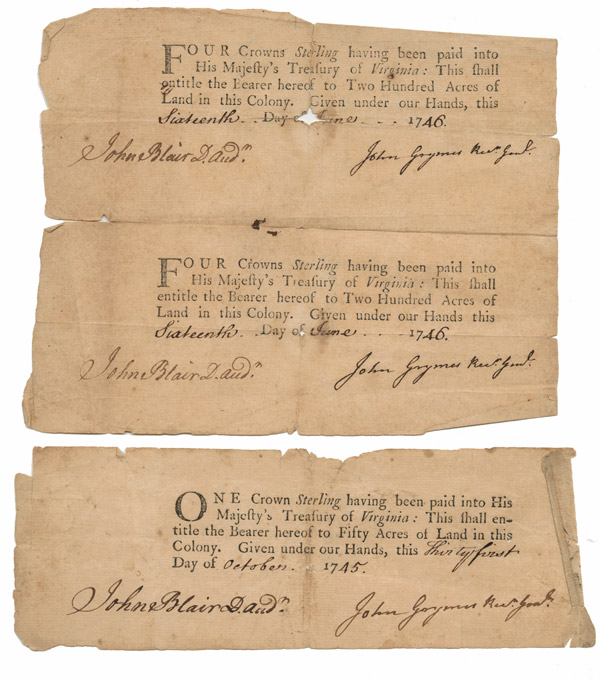 FOUR Crowns Sterling having been paid into
His Majeſty's Treaſury of Virginia: This ſhall
entitle the Bearer hereof to Two Hundred Acres of
Land in this Colony. Given under our Hands, this
Sixteenth Day of June 1746.
John Blair D. Audr. John Grymes Recr. Genl.
FOUR Crowns Sterling having been paid into
His Majeſty's Treaſury of Virginia: This ſhall
entitle the Bearer hereof to Two Hundred Acres of
Land in this Colony. Given under our Hands this
Sixteenth Day of June 1746.
John Blair D. Audr. John Grymes Recr. Genl.
ONE Crown Sterling having been paid into His
Majeſty's Treaſury of Virginia: This ſhall en-
title the Bearer hereof to Fifty Acres of Land in this
Colony. Given under our Hands, this Thirty first
Day of October 1745.
John Blair D. Audr. John Grymes Recr. Genl.